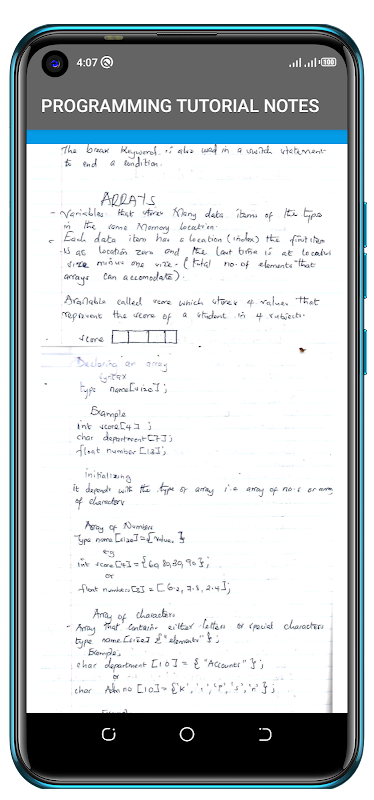 4:07
100
PROGRAMMING TUTORIAL NOTES
The break keyword is also used in a switch statement
to end a condition.
ARRAYS
- Variables that stores Many data items of the type
in the same Memory location.
- Each data item has a location (index) the first item
is at location zero and the last item is at location
size minus one size - (total no. of elements that
arrays can accomodate).
Available called score which stores 4 values that
represent the score of a student in 4 subjects.
score
Declaring an array
Syntax
type name[size];
Example
int score[4] ;
char department[7];
float number[13];
initializing
it depends with the type of array i.e array of no.s or array
of characters
Array of Numbers
Type name [size] = { value, }
eg
int score [4] = {60, 80, 30, 90};
or
float numbers[3] = [6.2, 7.8, 2.4];
Array of characters
- Array that contains either letters or special characters
type name [size] {"elements"};
Example,
char department [10] = {"Accounts"};
or
char Adm no [10] =